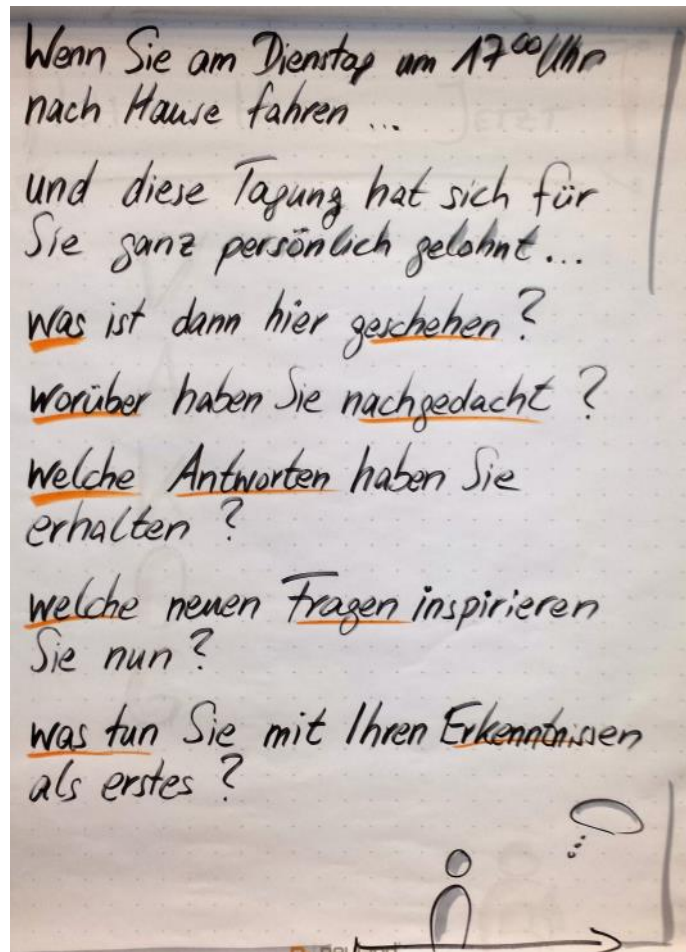 Wenn Sie am Dienstag um 17⁰⁰ Uhr
nach Hause fahren ...
und diese Tagung hat sich für
Sie ganz persönlich gelohnt ...
was ist dann hier geschehen ?
worüber haben Sie nachgedacht ?
welche Antworten haben Sie
erhalten ?
welche neuen Fragen inspirieren
Sie nun ?
was tun Sie mit Ihren Erkenntnissen
als erstes ?